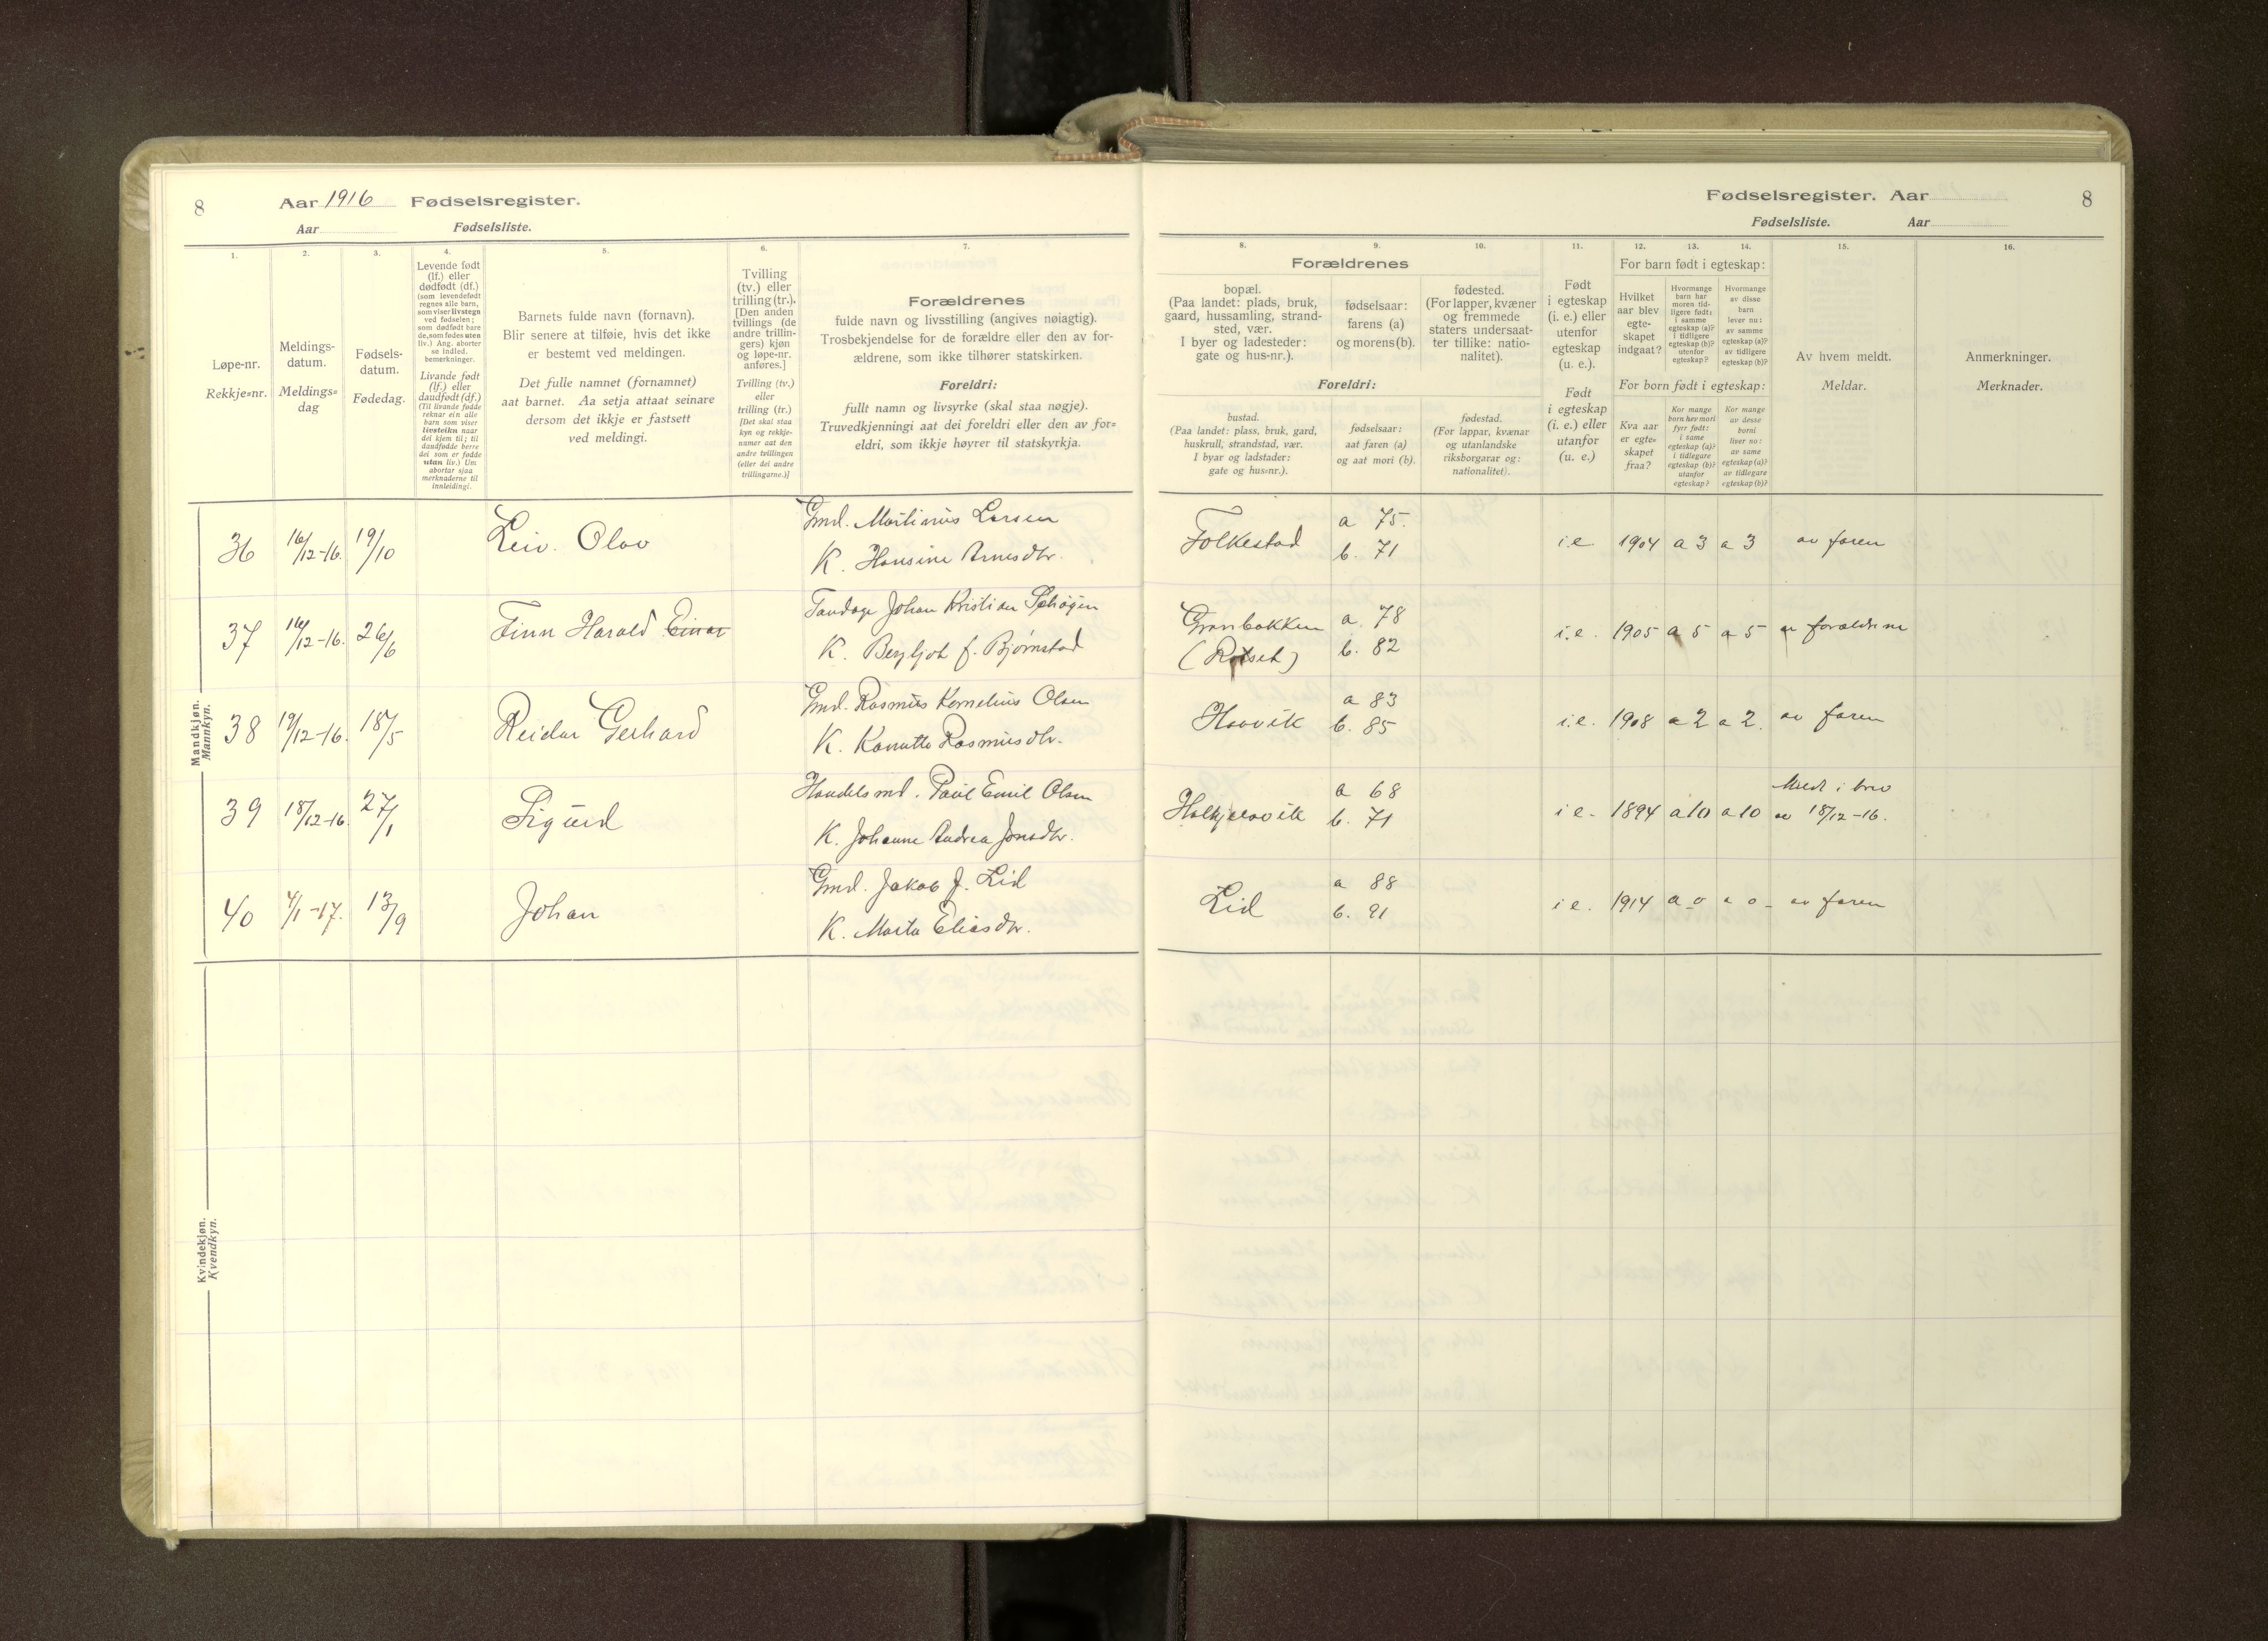 8
Aar 1916 Fødselsregister.
Aar Fødselsliste.
1.
Løpe-nr.
Rekkje=nr.
2.
Meldings-
datum.
Meldings=
dag
3.
Fødsels-
datum.
Fødedag.
4.
Levende født
(lf.) eller
dødfødt (df.)
(som levendefødt
regnes alle barn,
som viser livstegn
ved fødselen;
som dødfødt bare
de, som fødes uten
liv.) Ang. aborter
se indled.
bemerkninger.
Livande født
(lf.) eller
daudfødt (df.)
(Til livande fødde
reknar ein alle
barn som viser
livsteikn naar
dei kjem til; til
daudfødde berre
dei som er fødde
utan liv.) Um
abortar sjaa
merknaderne til
innleidingi.
5.
Barnets fulde navn (fornavn).
Blir senere at tilføie, hvis det ikke
er bestemt ved meldingen.
Det fulle namnet (fornamnet)
aat barnet. Aa setja attaat seinare
dersom det ikkje er fastsett
ved meldingi.
6.
Tvilling
(tv.) eller
trilling (tr.).
[Den anden
tvillings (de
andre trillin-
gers) kjøn
og løpe-nr.
anføres.]
Tvilling (tv.)
eller
trilling (tr.)
[Det skal staa
kyn og rekkje-
numer aat den
andre tvillingen
(eller dei andre
trillingarne.)]
7.
Forældrenes
fulde navn og livsstilling (angives nøiagtig).
Trosbekjendelse for de forældre eller den av for-
ældrene, som ikke tilhører statskirken.
Foreldri:
fullt namn og livsyrke (skal staa nøgje).
Truvedkjenningi aat dei foreldri eller den av for=
eldri, som ikkje høyrer til statskyrkja.
Mandkjøn.
Mannkyn.
36 16/12-16. 19/10 Leiv. Olav Gmd. Martinus Larsen
K. Hansine Arnesdtr.
37 16/12-16. 26/6 Finn Harald Einar Tandlæge Johan Kristian
K. Bergljot f. Bjørnstad
38 19/12-16. 18/5 Reidar Gerhard Gmd. Rasmus Kornelius Olsen
K. Rasmusdtr.
39 18/12-16. 27/1 Sigurd Handelsmd. Paul Emil Olsen
K. Johanne Andrea Jonsdtr.
40 4/1-17. 13/9 Johan Gmd. Jakob J. Lid
K. Marta Eliasdtr.
Kvindekjøn.
Kvendkyn.
Fødselsregister. Aar 8
Fødselsliste. Aar
Forældrenes
8.
bopæl.
(Paa landet: plads, bruk,
gaard, hussamling, strand-
sted, vær.
I byer og ladesteder:
gate og hus-nr.).
9.
fødselsaar:
farens (a)
og morens (b).
10.
fødested.
(For lapper, kvæner
og fremmede
staters undersaat-
ter tillike: natio-
nalitet).
Foreldri:
bustad.
(Paa landet: plass, bruk, gard,
huskrull, strandstad, vær.
I byar og ladstader:
gate og hus=nr.).
fødselsaar:
aat faren (a)
og aat mori (b).
fødestad.
(For lappar, kvænar
og utanlandske
riksborgarar og:
nationalitet).
11.
Født
i egteskap
(i. e.) eller
utenfor
egteskap
(u. e.).
Født
i egteskap
(i. e.) eller
utanfor
(u. e.)
For barn født i egteskap:
12.
Hvilket
aar blev
egte-
skapet
indgaat?
13.
Hvormange
barn har
moren tid-
ligere født:
i samme
egteskap (a)?
i tidligere
egteskap (b)?
utenfor
egteskap?
14.
Hvormange
av disse
barn
lever nu:
av samme
egteskap (a)?
av tidligere
egteskap (b)?
For born født i egteskap:
Kva aar
er egte=
skapet
fraa?
Kor mange
born hev mori
fyrr født:
i same
egteskap (a)?
i tidlegare
egteskap (b)?
utanfor
egteskap?
Kor mange
av desse
borni
liver no:
av same
egteskap (a)?
av tidlegare
egteskap (b)?
15.
Av hvem meldt.
Meldar.
16.
Anmerkninger.
Merknader.
Folkestad a 75. b. 71 i.e. 1904 a 3 a 3 av faren
Granbakken (Rotset) a. 78 b. 82 i.e. 1905 a 5 a 5 av forældrene
Haavik a 83 b. 85 i.e. 1908 a 2 a 2. av faren
a 68 b. 71 i e. 1894 a 10 a 10 Meldt i brev
av 18/12-16.
Lid a 88 b. 91 i e. 1914 a o a o - av faren